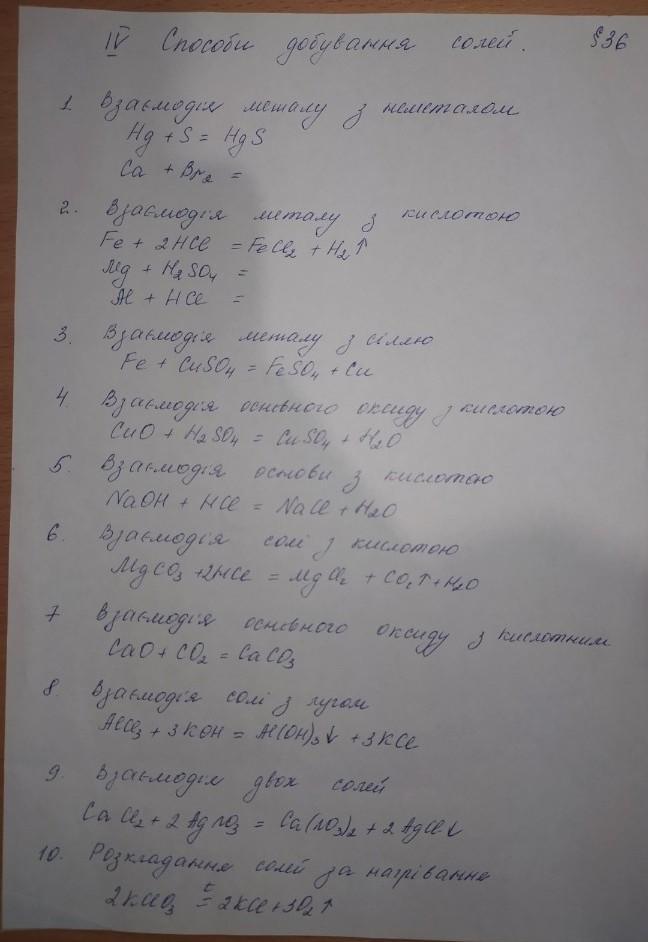 IV Способи добування солей. §36
1. Взаємодія металу з неметалом
Hg + S = HgS
Ca + Br₂ =
2. Взаємодія металу з кислотою
Fe + 2HCl = FeCl₂ + H₂↑
Mg + H₂SO₄ =
Al + HCl =
3. Взаємодія металу з сіллю
Fe + CuSO₄ = FeSO₄ + Cu
4. Взаємодія основного оксиду з кислотою
CuO + H₂SO₄ = CuSO₄ + H₂O
5. Взаємодія основи з кислотою
NaOH + HCl = NaCl + H₂O
6. Взаємодія солі з кислотою
MgCO₃ + 2HCl = MgCl₂ + CO₂↑ + H₂O
7 Взаємодія основного оксиду з кислотним
CaO + CO₂ = CaCO₃
8. Взаємодія солі з лугом
AlCl₃ + 3KOH = Al(OH)₃↓ + 3KCl
9. Взаємодія двох солей
CaCl₂ + 2AgNO₃ = Ca(NO₃)₂ + 2AgCl↓
10. Розкладання солей за нагрівання
2KClO₃ =ᵗ 2KCl + 3O₂↑